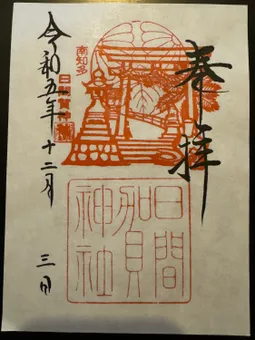 奉拝
南知多
日間賀
日間
賀
神社
令和五年十二月三日